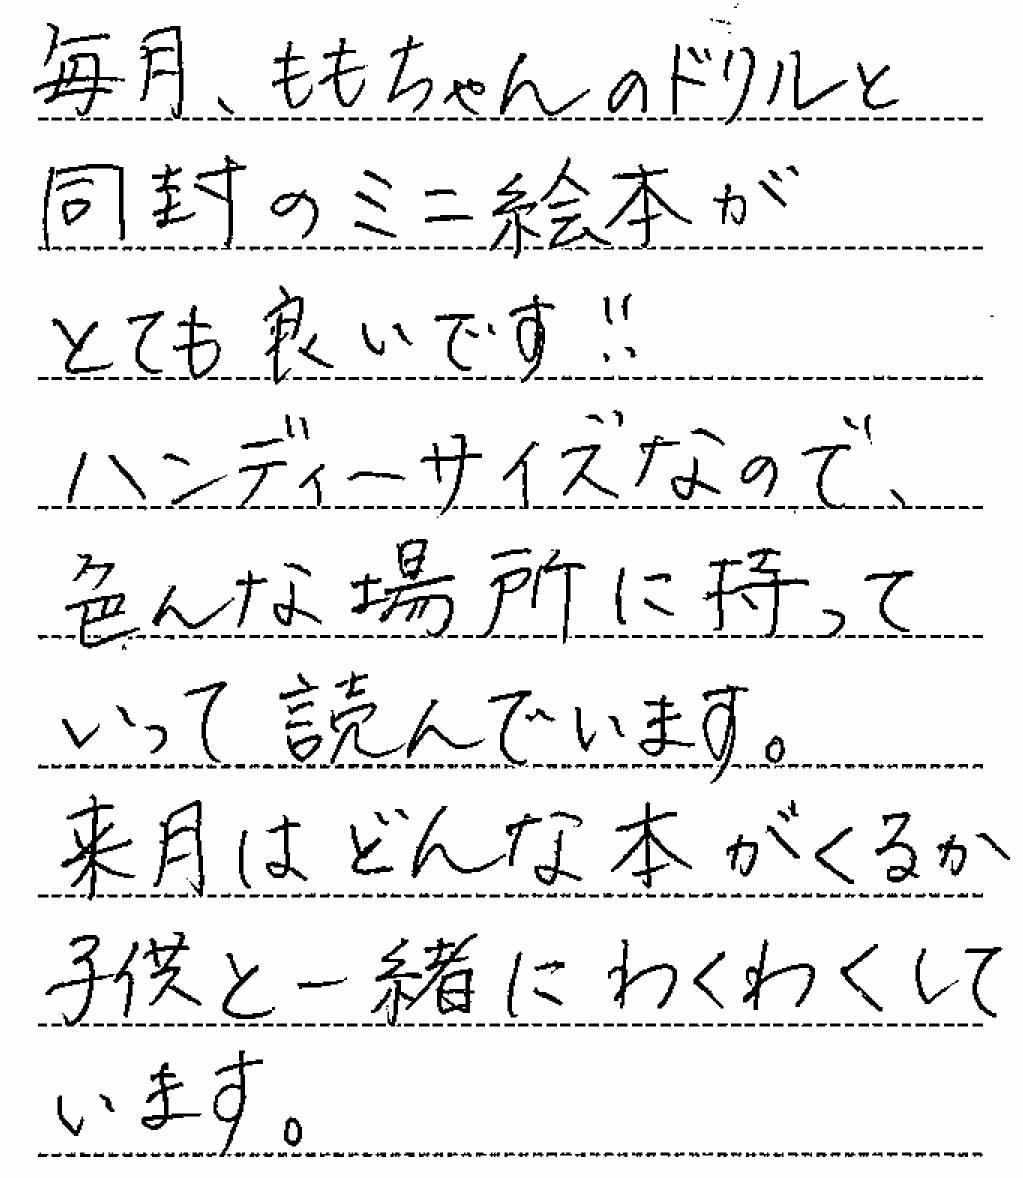 毎月、ももちゃんのドリルと
同封のミニ絵本が
とても良いです!!
ハンディーサイズなので、
色んな場所に持って
いって読んでいます。
来月はどんな本がくるか
子供と一緒にわくわくして
います。